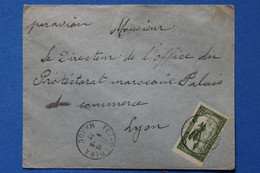 par avion
Monsieur
le Directeur de l'office du
Protectorat marocain Palais
du commerce
Lyon
MAROC